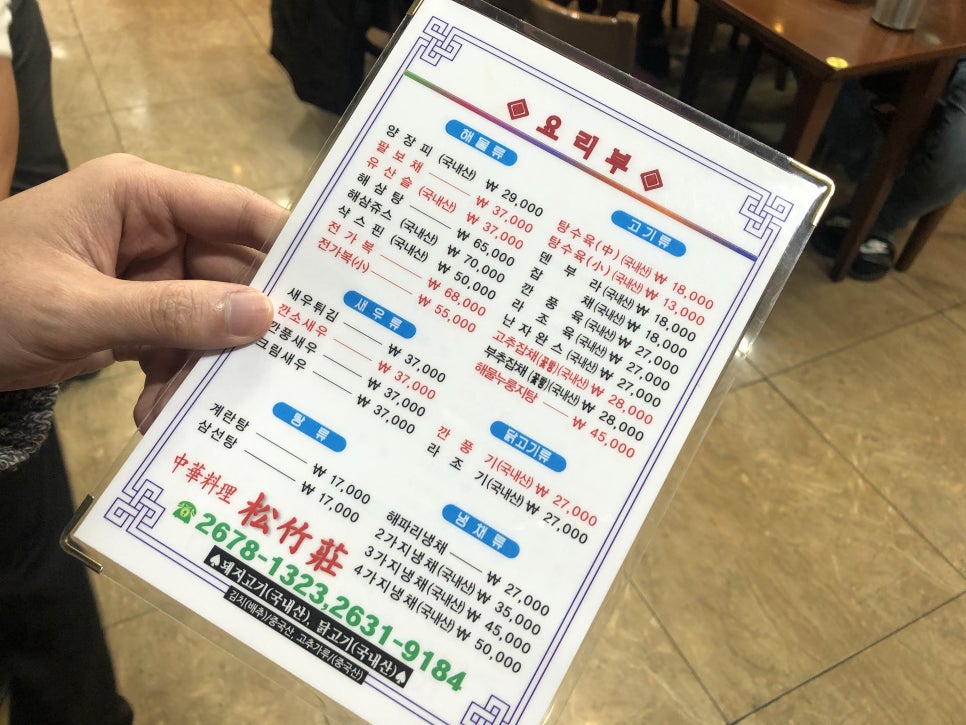 요리부
해물류
양장피 (국내산) ₩ 29,000
팔보채 ₩ 37,000
유산슬 (국내산) ₩ 37,000
해삼탕 ₩ 65,000
해삼쥬스 (국내산) ₩ 70,000
삭스핀 (국내산) ₩ 50,000
전가복 ₩ 68,000
전가복(小) ₩ 55,000
새우류
새우튀김 ₩ 37,000
깐소새우 ₩ 37,000
깐풍새우 ₩ 37,000
크림새우 ₩ 37,000
탕류
계란탕 ₩ 17,000
삼선탕 ₩ 17,000
고기류
탕수육(中) (국내산) ₩ 18,000
탕수육(小) (국내산) ₩ 13,000
덴부라 (국내산) ₩ 18,000
잡채 (국내산) ₩ 18,000
깐풍육 (국내산) ₩ 27,000
라조육 (국내산) ₩ 27,000
난자완스 (국내산) ₩ 27,000
고추잡채(꽃빵)(국내산) ₩ 28,000
부추잡채(꽃빵)(국내산) ₩ 28,000
해물누룽지탕 ₩ 45,000
닭고기류
깐풍기(국내산) ₩ 27,000
라조기(국내산) ₩ 27,000
냉채류
해파리냉채 ₩ 27,000
2가지냉채(국내산) ₩ 35,000
3가지냉채(국내산) ₩ 45,000
4가지냉채(국내산) ₩ 50,000
中華料理 松竹莊
☎2678-1323,2631-9184
♠돼지고기(국내산), 닭고기(국내산)♠
김치(배추)/중국산, 고추가루/(중국산)